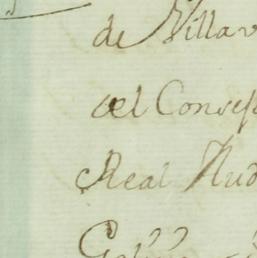 de Villav
del Consej
Real Aud